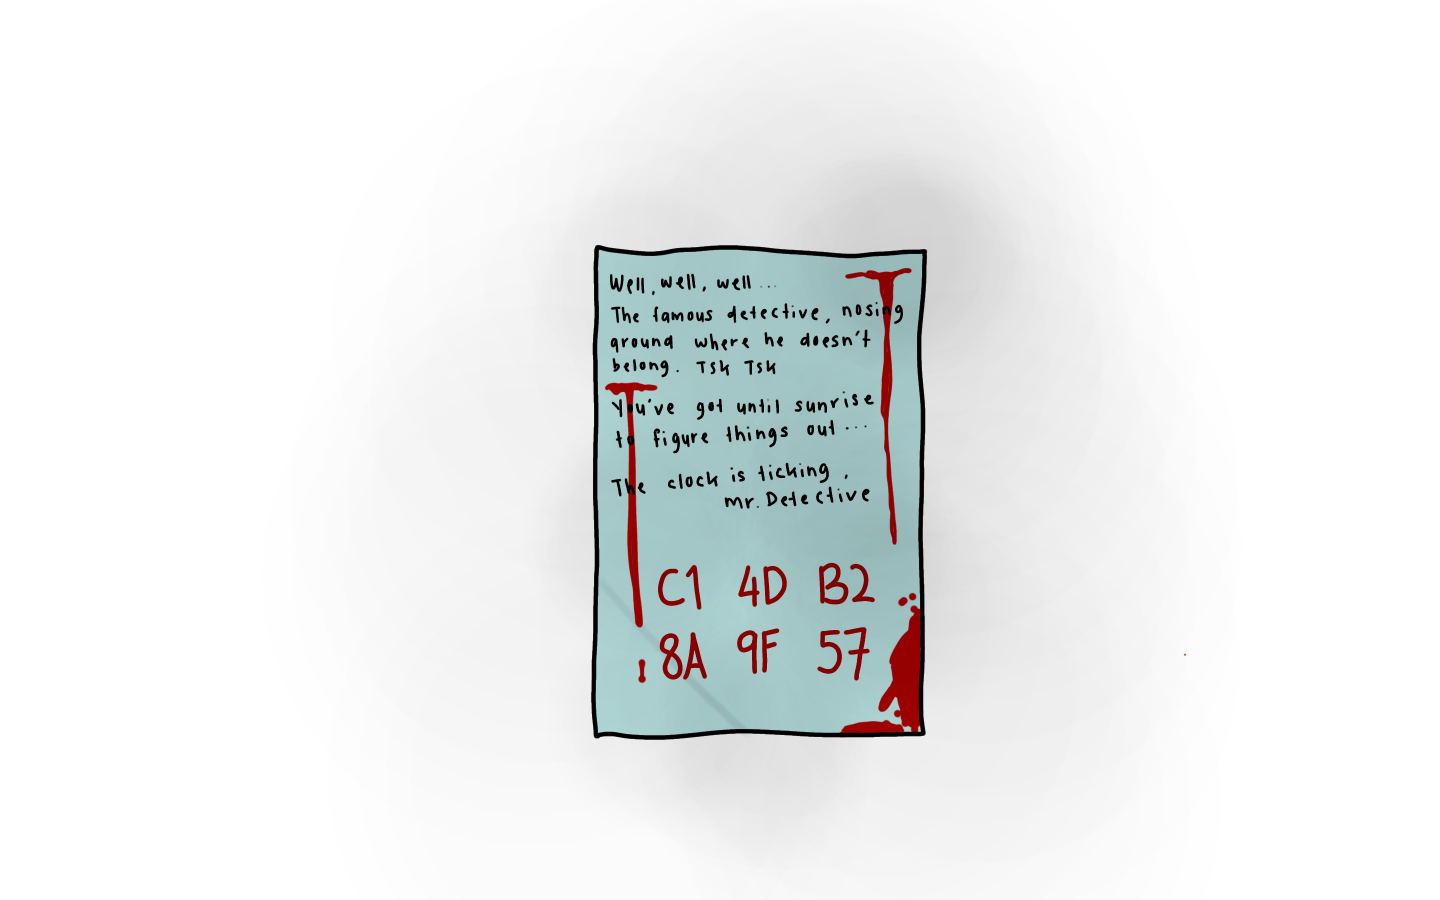 Well, well, well ...
The famous detective, nosing
around where he doesn't
belong. Tsk Tsk
You've got until sunrise
to figure things out ...
The clock is ticking,
mr. Detective
C1 4D B2
8A 9F 57